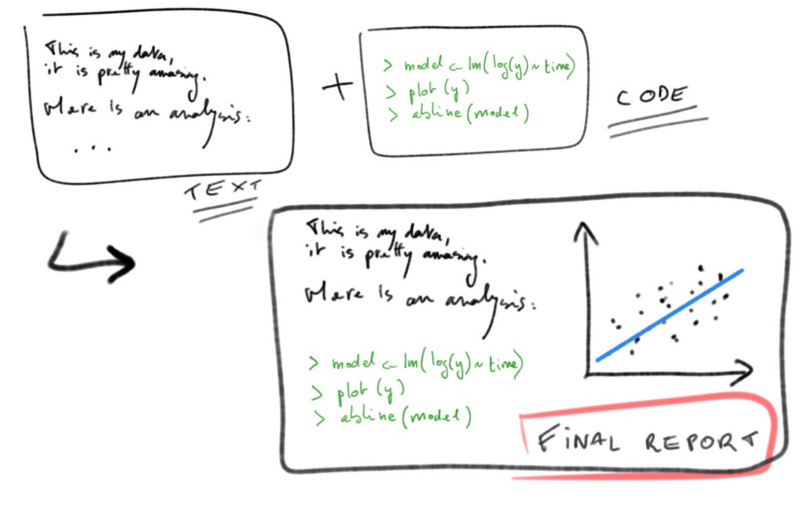 This is my data,
it is pretty amazing.
Here is an analysis:
...
TEXT
+
> model <- lm(log(y) ~ time)
> plot (y)
> abline (model)
CODE
This is my data,
it is pretty amazing.
Here is an analysis:
> model <- lm(log(y) ~ time)
> plot (y)
> abline (model)
FINAL REPORT